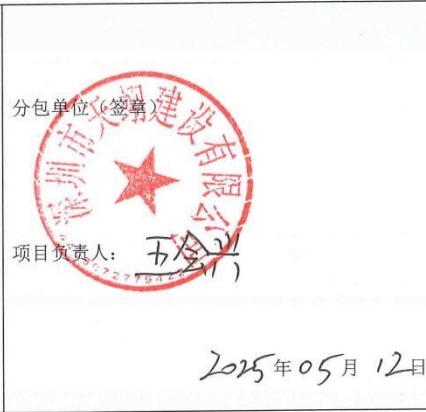 分包单位（签章）
深圳市天翔建设有限公司
项目负责人：
2025年05月12日